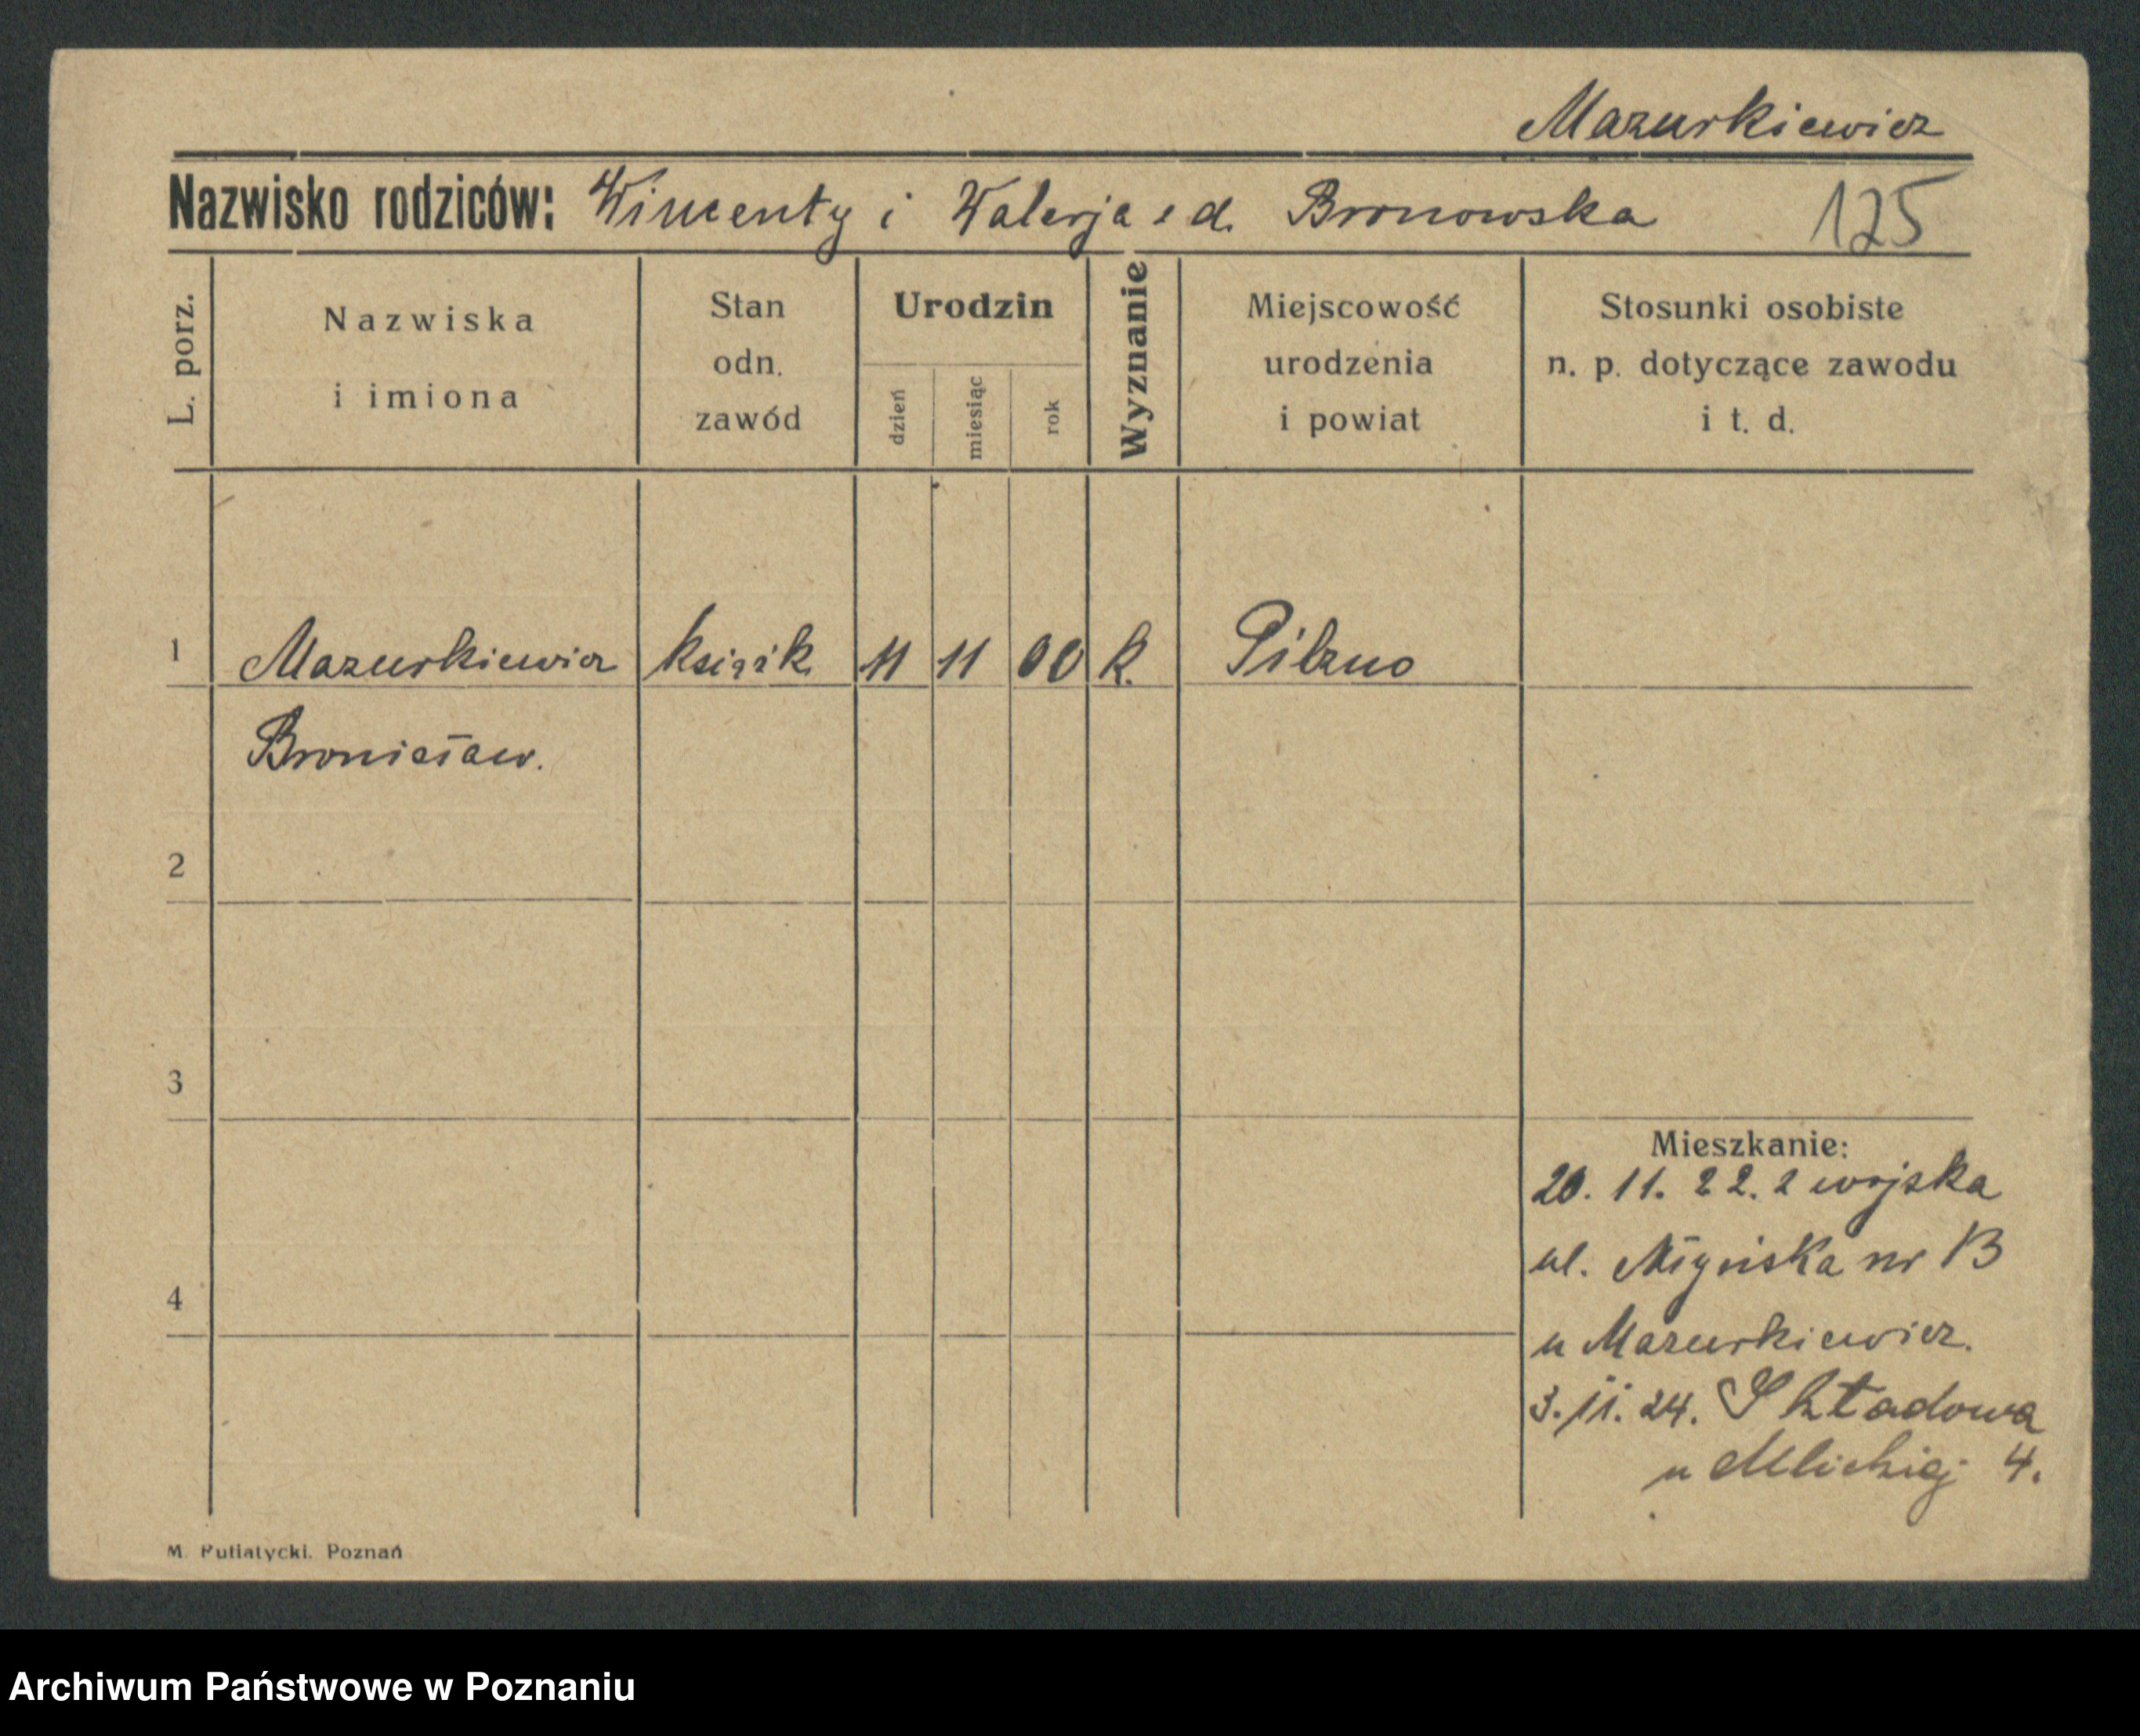 Mazurkiewicz
Nazwisko rodziców: Wincenty i Walerja z d. Bronowska 125
L. porz.
Nazwiska
i imiona
Stan
odn.
zawód
Urodzin
dzień
miesiąc
rok
Wyznanie
Miejscowość
urodzenia
i powiat
Stosunki osobiste
n. p. dotyczące zawodu
i t. d.
1 Mazurkiewicz 11 11 00 k. Pilzno
Bronisław.
2
3
4
Mieszkanie:
20. 11. 22. z wojska
ul. Młyńska nr 13
u Mazurkiewicz.
3. 11. 24. Składowa
u 4.
M. Putiatycki. Poznań
Archiwum Państwowe w Poznaniu